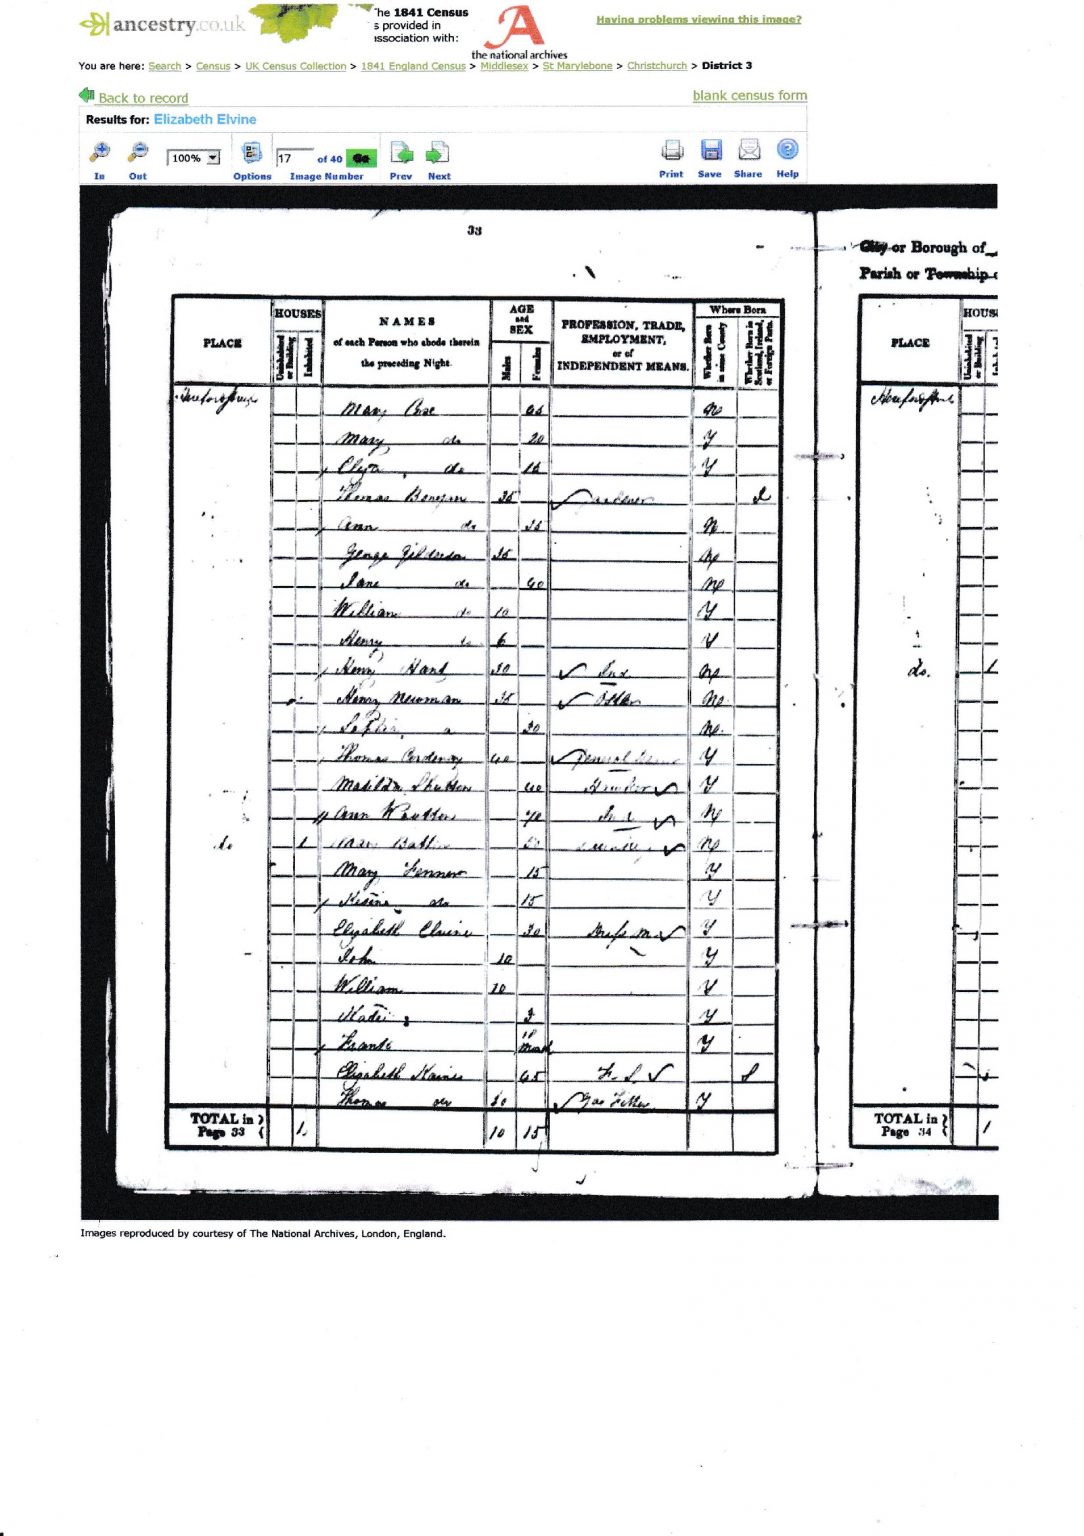 ancestry.co.uk
he 1841 Census
s provided in
ssociation with:
the national archives
Having problems viewing this image?
You are here: Search > Census > UK Census Collection > 1841 England Census > Middlesex > St Marylebone > Christchurch > District 3
Back to record
blank census form
Results for: Elizabeth Elvine
100%
17 of 40 Go
In Out Options Image Number Prev Next Print Save Share Help
33
City or Borough of
Parish or Township o
PLACE
HOUSES
Uninhabited or Building
Inhabited
NAMES
of each Person who abode therein
the preceding Night.
AGE
and
SEX
Males
Females
PROFESSION, TRADE,
EMPLOYMENT,
or of
INDEPENDENT MEANS.
Where Born
Whether Born in same County
Whether Born in Scotland, Ireland, or Foreign Parts.
PLACE
HOUS
Uninhabited or Building
Mary 65 No
Mary do 20 Y
Eliza do 15 Y
Thomas 35 Gardener I
Ann do 35 N
George 35 No
Jane do 40 No
William do 10 Y
Henry do 6 Y
Henry Hand 30 Ind No
Henry Newman 35 Ostler No
30 No
Thomas 40 General Y
Matilda 40 Hawker Y
Ann 70 Ind No
do 1 50 No
Mary Fenner 15 Y
do 15 Y
Elizabeth Elvine 30 Dress M Y
John 10 Y
William 10 Y
3 Y
Frank Y
Elizabeth 45 F. S. S
Thomas do 20 Gas Fitter Y
TOTAL in
Page 33
1 10 15
do. 1
TOTAL in
Page 34
1
Images reproduced by courtesy of The National Archives, London, England.